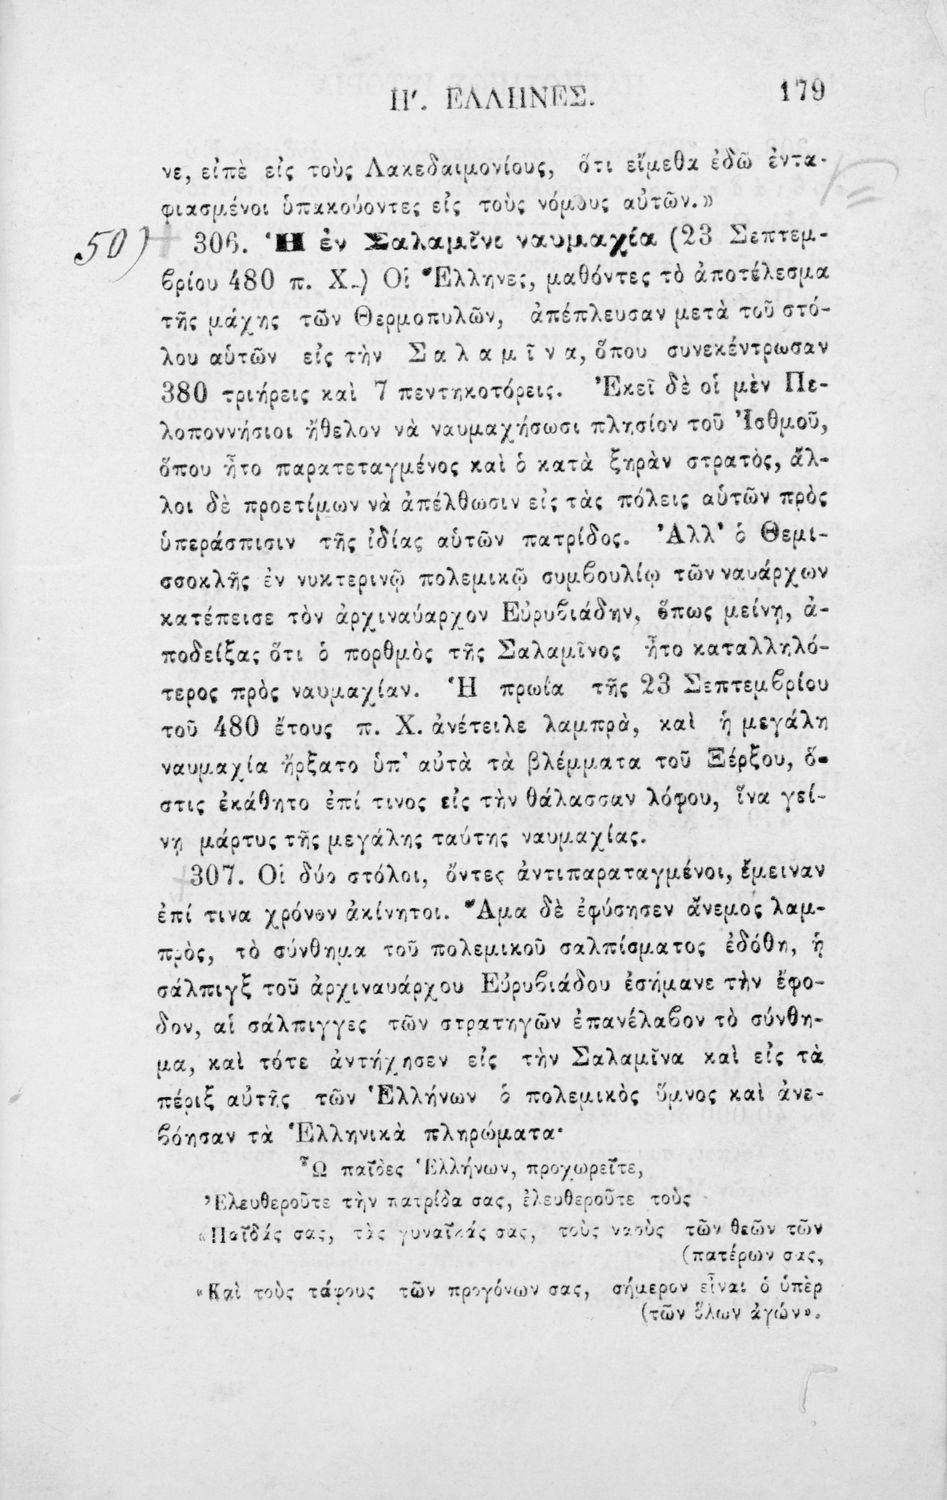 Η′. ΕΛΛΗΝΕΣ. 179
νε, εἰπὲ εἰς τοὺς Λακεδαιμονίους, ὅτι εἴμεθα ἐδῶ ἐντα-
φιασμένοι ὑπακούοντες εἰς τοὺς νόμους αὐτῶν.»
50) 306. Ἡ ἐν Σαλαμῖνι ναυμαχία (23 Σεπτεμ-
βρίου 480 π. Χ.) Οἱ Ἕλληνες, μαθόντες τὸ ἀποτέλεσμα
τῆς μάχης τῶν Θερμοπυλῶν, ἀπέπλευσαν μετὰ τοῦ στό-
λου αὑτῶν εἰς τὴν Σαλαμῖνα, ὅπου συνεκέντρωσαν
380 τριήρεις καὶ 7 πεντηκοτόρεις. Ἐκεῖ δὲ οἱ μὲν Πε-
λοποννήσιοι ἤθελον νὰ ναυμαχήσωσι πλησίον τοῦ Ἰσθμοῦ,
ὅπου ἦτο παρατεταγμένος καὶ ὁ κατὰ ξηρὰν στρατὸς, ἄλ-
λοι δὲ προετίμων νὰ ἀπέλθωσιν εἰς τὰς πόλεις αὑτῶν πρὸς
ὑπεράσπισιν τῆς ἰδίας αὑτῶν πατρίδος. Ἀλλ' ὁ Θεμι-
σσοκλῆς ἐν νυκτερινῷ πολεμικῷ συμβουλίῳ τῶν ναυάρχων
κατέπεισε τὸν ἀρχιναύαρχον Εὐρυβιάδην, ὅπως μείνῃ, ἀ-
ποδείξας ὅτι ὁ πορθμὸς τῆς Σαλαμῖνος ἦτο καταλληλό-
τερος πρὸς ναυμαχίαν. Ἡ πρωία τῆς 23 Σεπτεμβρίου
τοῦ 480 ἔτους π. Χ. ἀνέτειλε λαμπρὰ, καὶ ἡ μεγάλη
ναυμαχία ἤρξατο ὑπ' αὐτὰ τὰ βλέμματα τοῦ Ξέρξου, ὅ-
στις ἐκάθητο ἐπί τινος εἰς τὴν θάλασσαν λόφου, ἵνα γεί-
νῃ μάρτυς τῆς μεγάλης ταύτης ναυμαχίας.
307. Οἱ δύο στόλοι, ὄντες ἀντιπαραταγμένοι, ἔμειναν
ἐπί τινα χρόνον ἀκίνητοι. Ἅμα δὲ ἐφύσησεν ἄνεμος λαμ-
πρὸς, τὸ σύνθημα τοῦ πολεμικοῦ σαλπίσματος ἐδόθη, ἡ
σάλπιγξ τοῦ ἀρχιναυάρχου Εὐρυβιάδου ἐσήμανε τὴν ἔφο-
δον, αἱ σάλπιγγες τῶν στρατηγῶν ἐπανέλαβον τὸ σύνθη-
μα, καὶ τότε ἀντήχησεν εἰς τὴν Σαλαμῖνα καὶ εἰς τὰ
πέριξ αὐτῆς τῶν Ἑλλήνων ὁ πολεμικὸς ὕμνος καὶ ἀνε-
βόησαν τὰ Ἑλληνικὰ πληρώματα·
Ὦ παῖδες Ἑλλήνων, προχωρεῖτε,
Ἐλευθεροῦτε τὴν πατρίδα σας, ἐλευθεροῦτε τοὺς
«Παῖδάς σας, τὰς γυναῖκάς σας, τοὺς ναοὺς τῶν θεῶν τῶν
(πατέρων σας,
«Καὶ τοὺς τάφους τῶν προγόνων σας, σήμερον εἶναι ὁ ὑπὲρ
(τῶν ὅλων ἀγών».